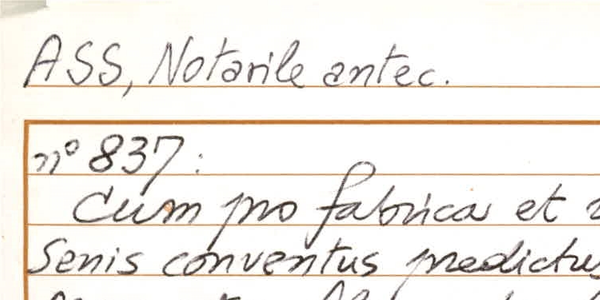 ASS, Notarile antec.
nº 837:
Cum pro fabrica et
Senis conventus predictus